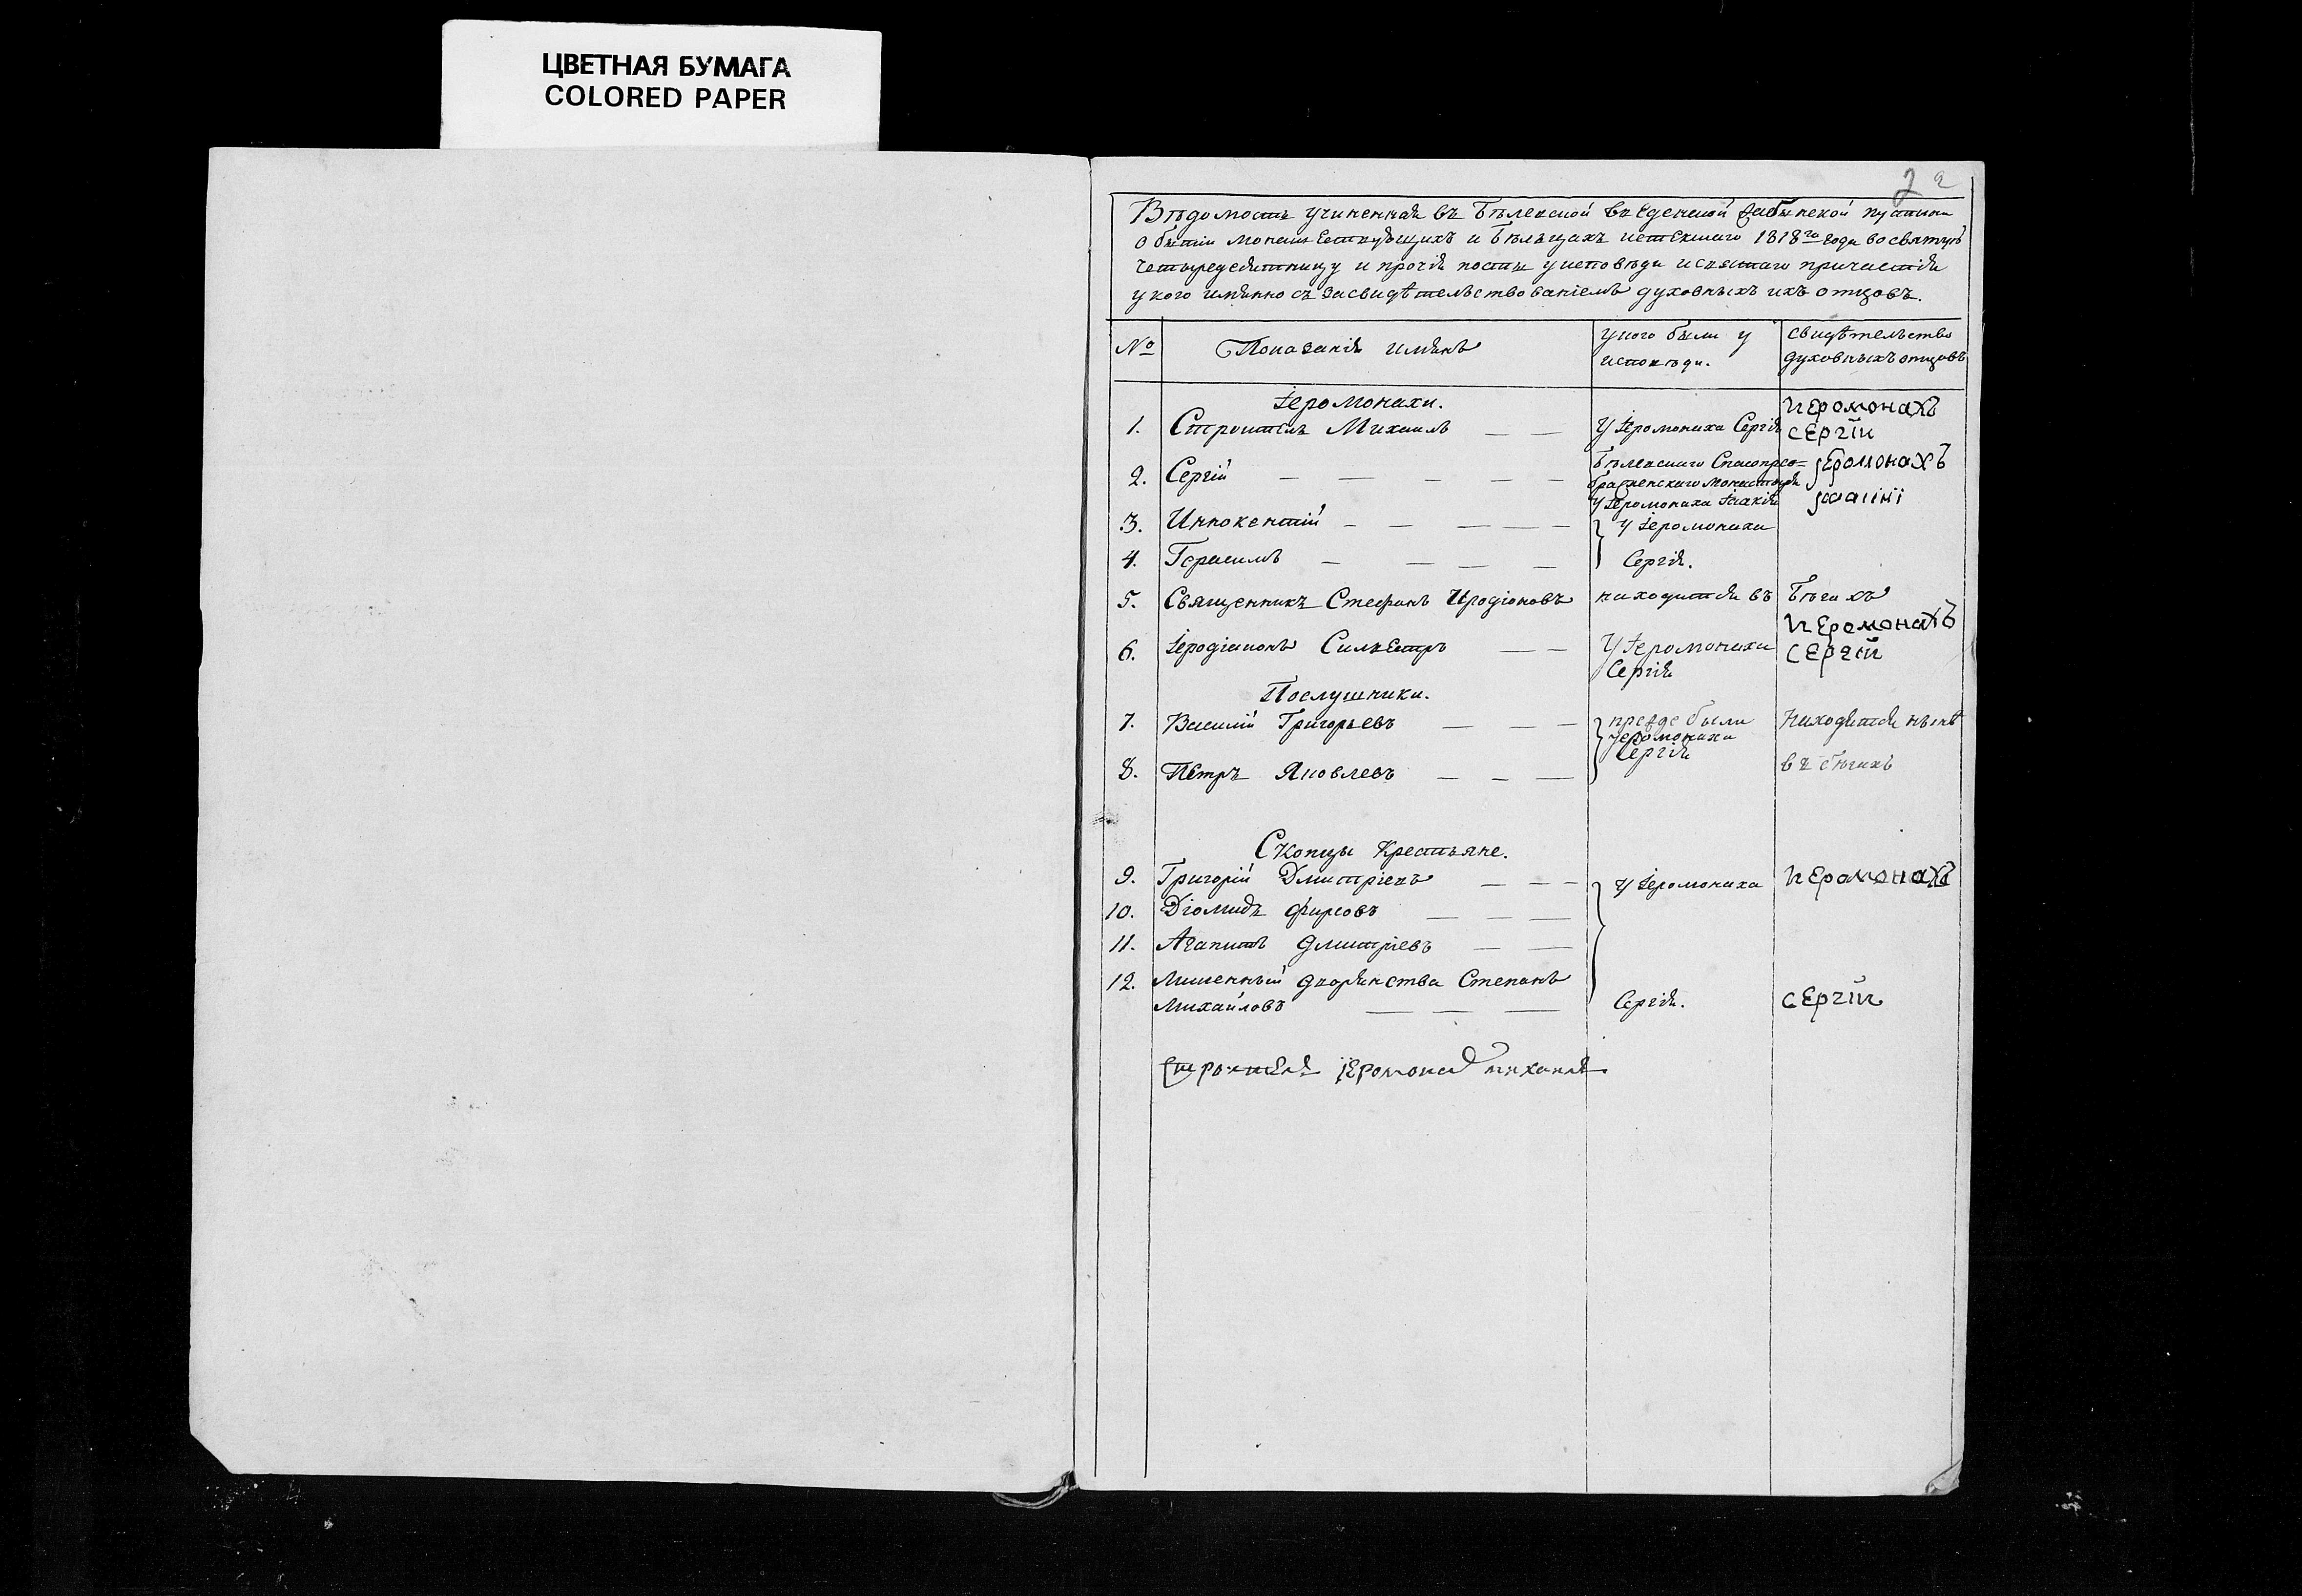 ЦВЕТНАЯ БУМАГА
COLORED PAPER
2
Вѣдомость учиненная въ Бѣлевской введенской Жабынской пустыни
о бытіи монашествующихъ и бѣльцахъ истекшаго 1818го года во святую
четыредесятницу и прочія посты у исповѣди и святаго причастія
у кого имянно съ засвидѣтельствованіемъ духовныхъ ихъ отцовъ.
№ Показаніе имянъ у кого были у исповѣди. свидѣтельство духовныхъ отцовъ
Іеромонахи.
1. Строитель Михаилъ — — У Іеромонаха Сергія иеромонахъ сергіи
2. Сергій — — — — — Бѣлевскаго Спасопрео=
браженскаго монастыря
У Іеромонаха Іоакія іеромонахъ
3. Иннокентій — — — — — у Іеромонаха
4. Герасимъ — — — — Сергія.
5. Священникъ Стефанъ Иродіоновъ находится въ бѣгахъ
6. Іеродіаконъ Силвестръ — — У Іеромонаха Сергія иеромонахъ сергіи
Послушники.
7. Василій Григорьевъ — — — прежде были у Іеромонаха Сергія находятся нынѣ
8. Петръ Яковлевъ — — — въ бѣгахъ
Скопцы Крестьяне.
9. Григорій Дмитріевъ — — — у Іеромонаха иеромонахъ
10. Діомидъ Фирсовъ — — —
11. Агапитъ Дмитріевъ — —
12. Лишенный дворянства Степанъ
Михайловъ — — — Сергія. сергіи
Строитель іеромонах михаилъ